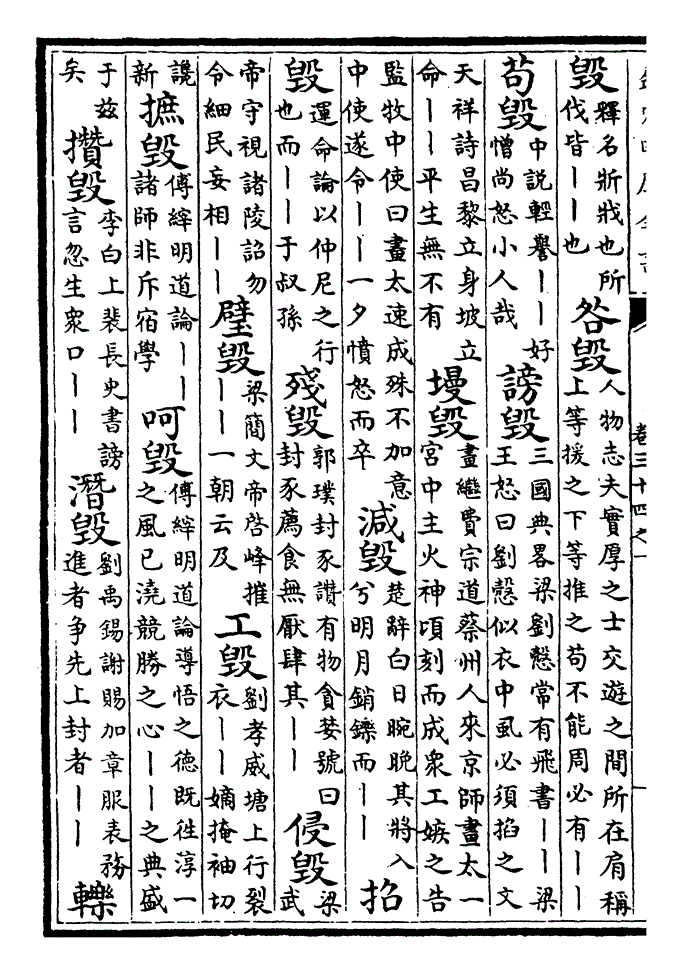 卷三十四之一
毀
釋名斨戕也所
伐皆丨丨也
咎毀
人物志夫實厚之士交遊之間所在肩稱
上等援之下等推之苟不能周必有丨丨
苟毀
中説輕譽丨丨好
憎尚怒小人哉
謗毀
三國典畧梁劉慤常有飛書丨丨梁
王怒曰劉慤似衣中虱必須掐之文
天祥詩昌黎立身坡立
命丨丨平生無不有
墁毀
畫繼費宗道蔡州人來京師畫太一
宮中主火神頃刻而成衆工嫉之告
監牧中使曰畫太速成殊不加意
中使遂令丨丨一夕憤怒而卒
減毀
楚辭白日晼晚其將入
兮明月銷鑠而丨丨
招
毀
運命論以仲尼之行
也而丨丨于叔孫
殘毀
郭璞封豕讃有物貪婪號曰
封豕薦食無厭肆其丨丨
侵毀
梁
武
帝守視諸陵詔勿
令細民妄相丨丨
璧毀
梁簡文帝啓峰摧
丨丨一朝云及
工毀
劉孝威塘上行裂
衣丨丨嫡掩袖切
讒
新
摭毀
傅縡明道論丨丨
諸師非斥宿學
呵毀
傅縡明道論導悟之德既往淳一
之風已澆競勝之心丨丨之典盛
于兹
矣
攢毀
李白上裴長史書謗
言忽生衆口丨丨
潛毀
劉禹錫謝賜加章服表務
進者争先上封者丨丨
轢